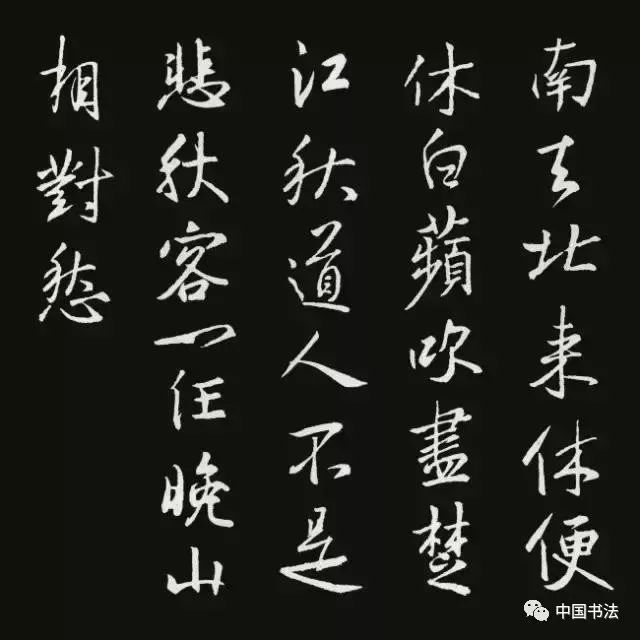 南去北来休便
休白蘋吹盡楚
江秋道人不是
悲秋客一任晚山
相對愁
中国书法